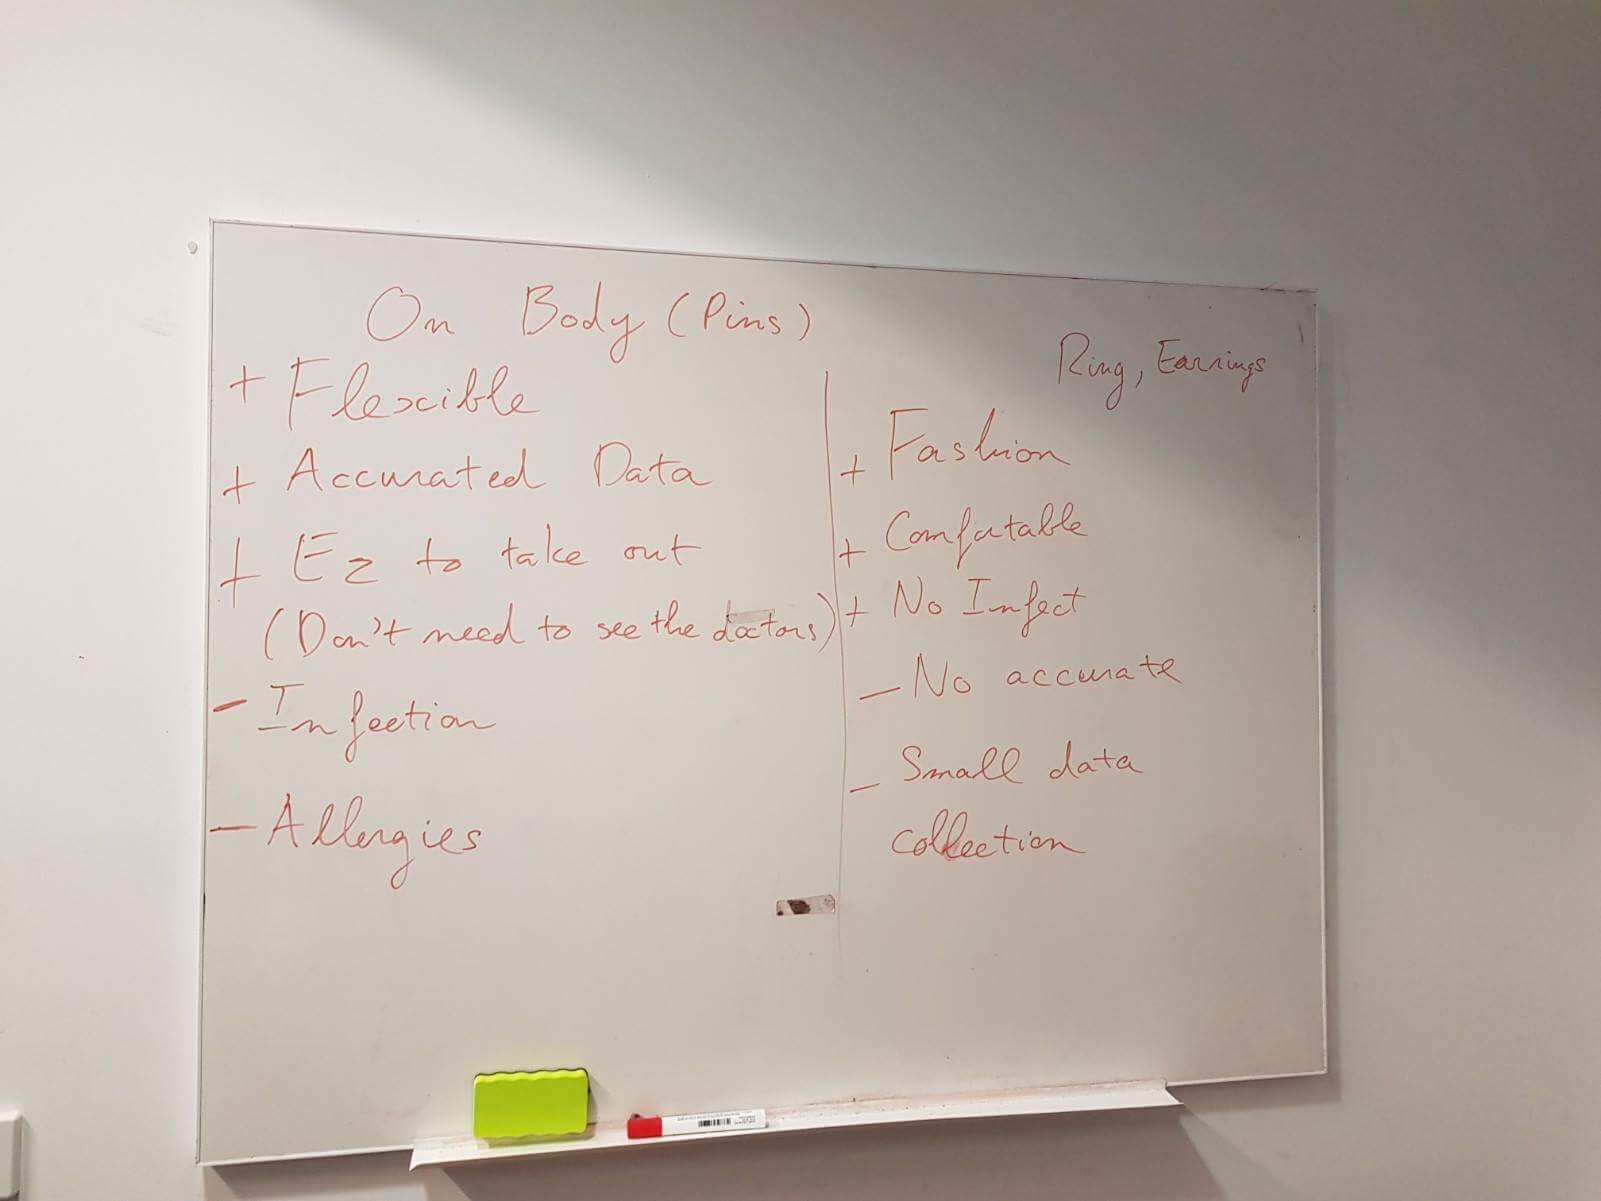 On Body (Pins)
+ Flexible
+ Accurated Data
+ Ez to take out
(Don't need to see the doctors)
- Infection
- Allergies
Ring, Earrings
+ Fashion
+ Comfortable
+ No Infect
- No accurate
- Small data
collection